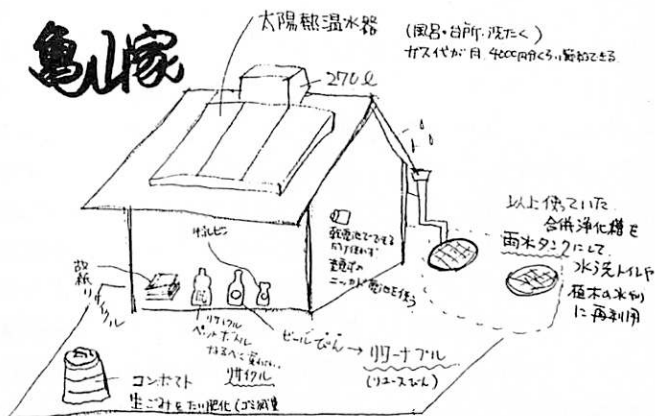 亀山家
太陽熱温水器
(風呂・台所・洗たく)
ガス代が月4000円分くらい節約できる
270ℓ
以上使っていた
合併浄化槽を
雨水タンクにして
水洗トイレや
植木の水やり
に再利用
乾電池で
使わず
充電式の
ニッカド電池を使う
古紙リサイクル
リサイクル
ペットボトル
なるべく買わない
リサイクル
ビールびん→リターナブル
(リユースびん)
コンポスト
生ごみをたい肥化(ゴミ減量